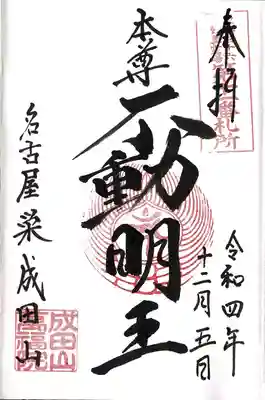 奉拝
番札所
令和四年
十二月五日
本尊
不動明王
名古屋栄成田山
成田山
萬福院